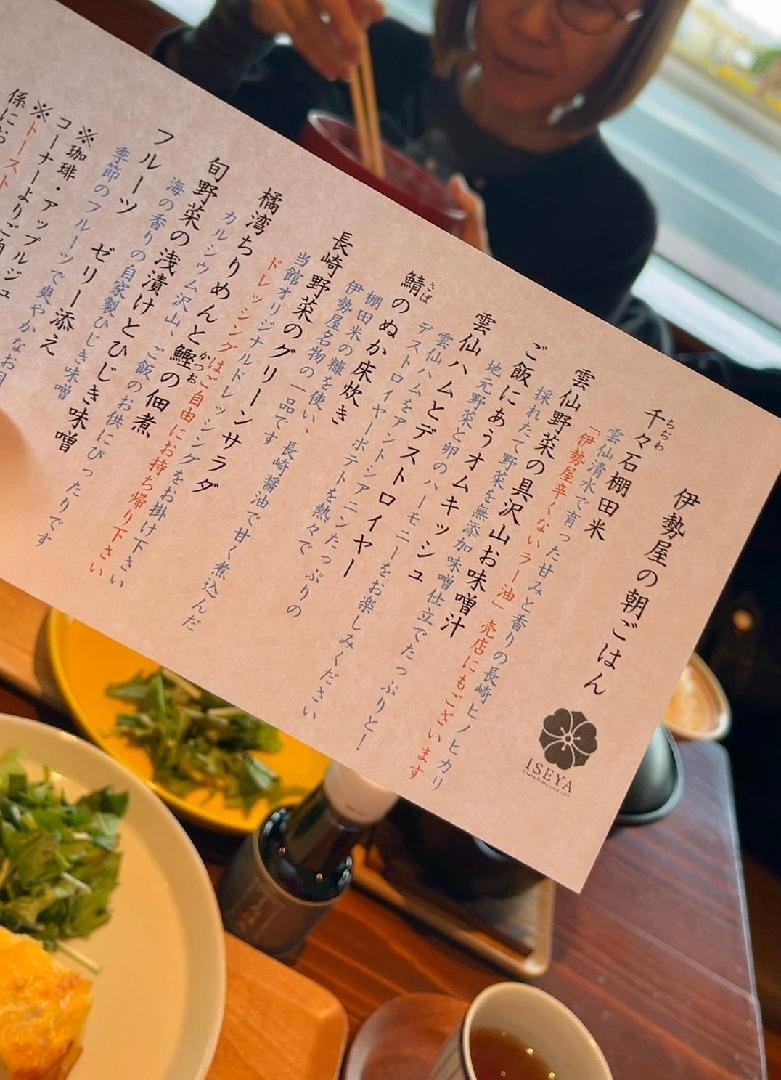 伊勢屋の朝ごはん
ちぢわ
千々石棚田米
雲仙清水で育った甘みと香りの長崎ヒノヒカリ
「伊勢屋辛くないラー油」売店にもございます
雲仙野菜の具沢山お味噌汁
採れたて野菜を無添加味噌仕立でたっぷりと！
ご飯にあうオムキッシュ
地元野菜と卵のハーモニーをお楽しみください
雲仙ハムとデストロイヤー
雲仙ハムをアントシアニンたっぷりの
デストロイヤーポテトを熱々で
さば
鯖のぬか床炊き
棚田米の糠を使い、長崎醤油で甘く煮込んだ
伊勢屋名物の一品です
長崎野菜のグリーンサラダ
当館オリジナルドレッシングをお掛け下さい
ドレッシングはご自由にお持ち帰り下さい
橘湾ちりめんと鰹の佃煮
かつお
カルシウム沢山、ご飯のお供にぴったりです
旬野菜の浅漬けとひじき味噌
海の香りの自家製ひじき味噌
フルーツ ゼリー添え
季節のフルーツで爽やかなお口
※珈琲・アップルジュ
コーナーよりご自
※トースト
係にお
ISEYA